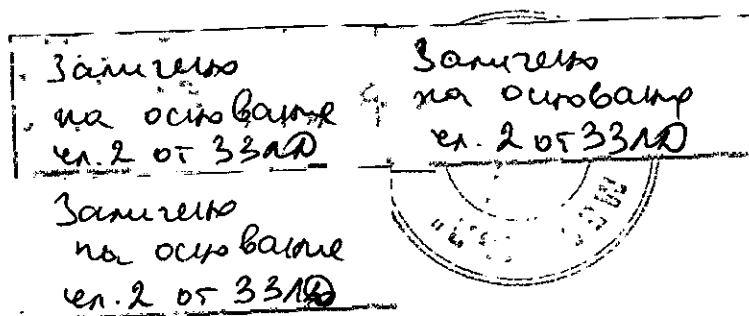 Заличено
на основание
чл. 2 от ЗЗЛД
Заличено
на основание
чл. 2 от ЗЗЛД
Заличено
на основание
чл. 2 от ЗЗЛД